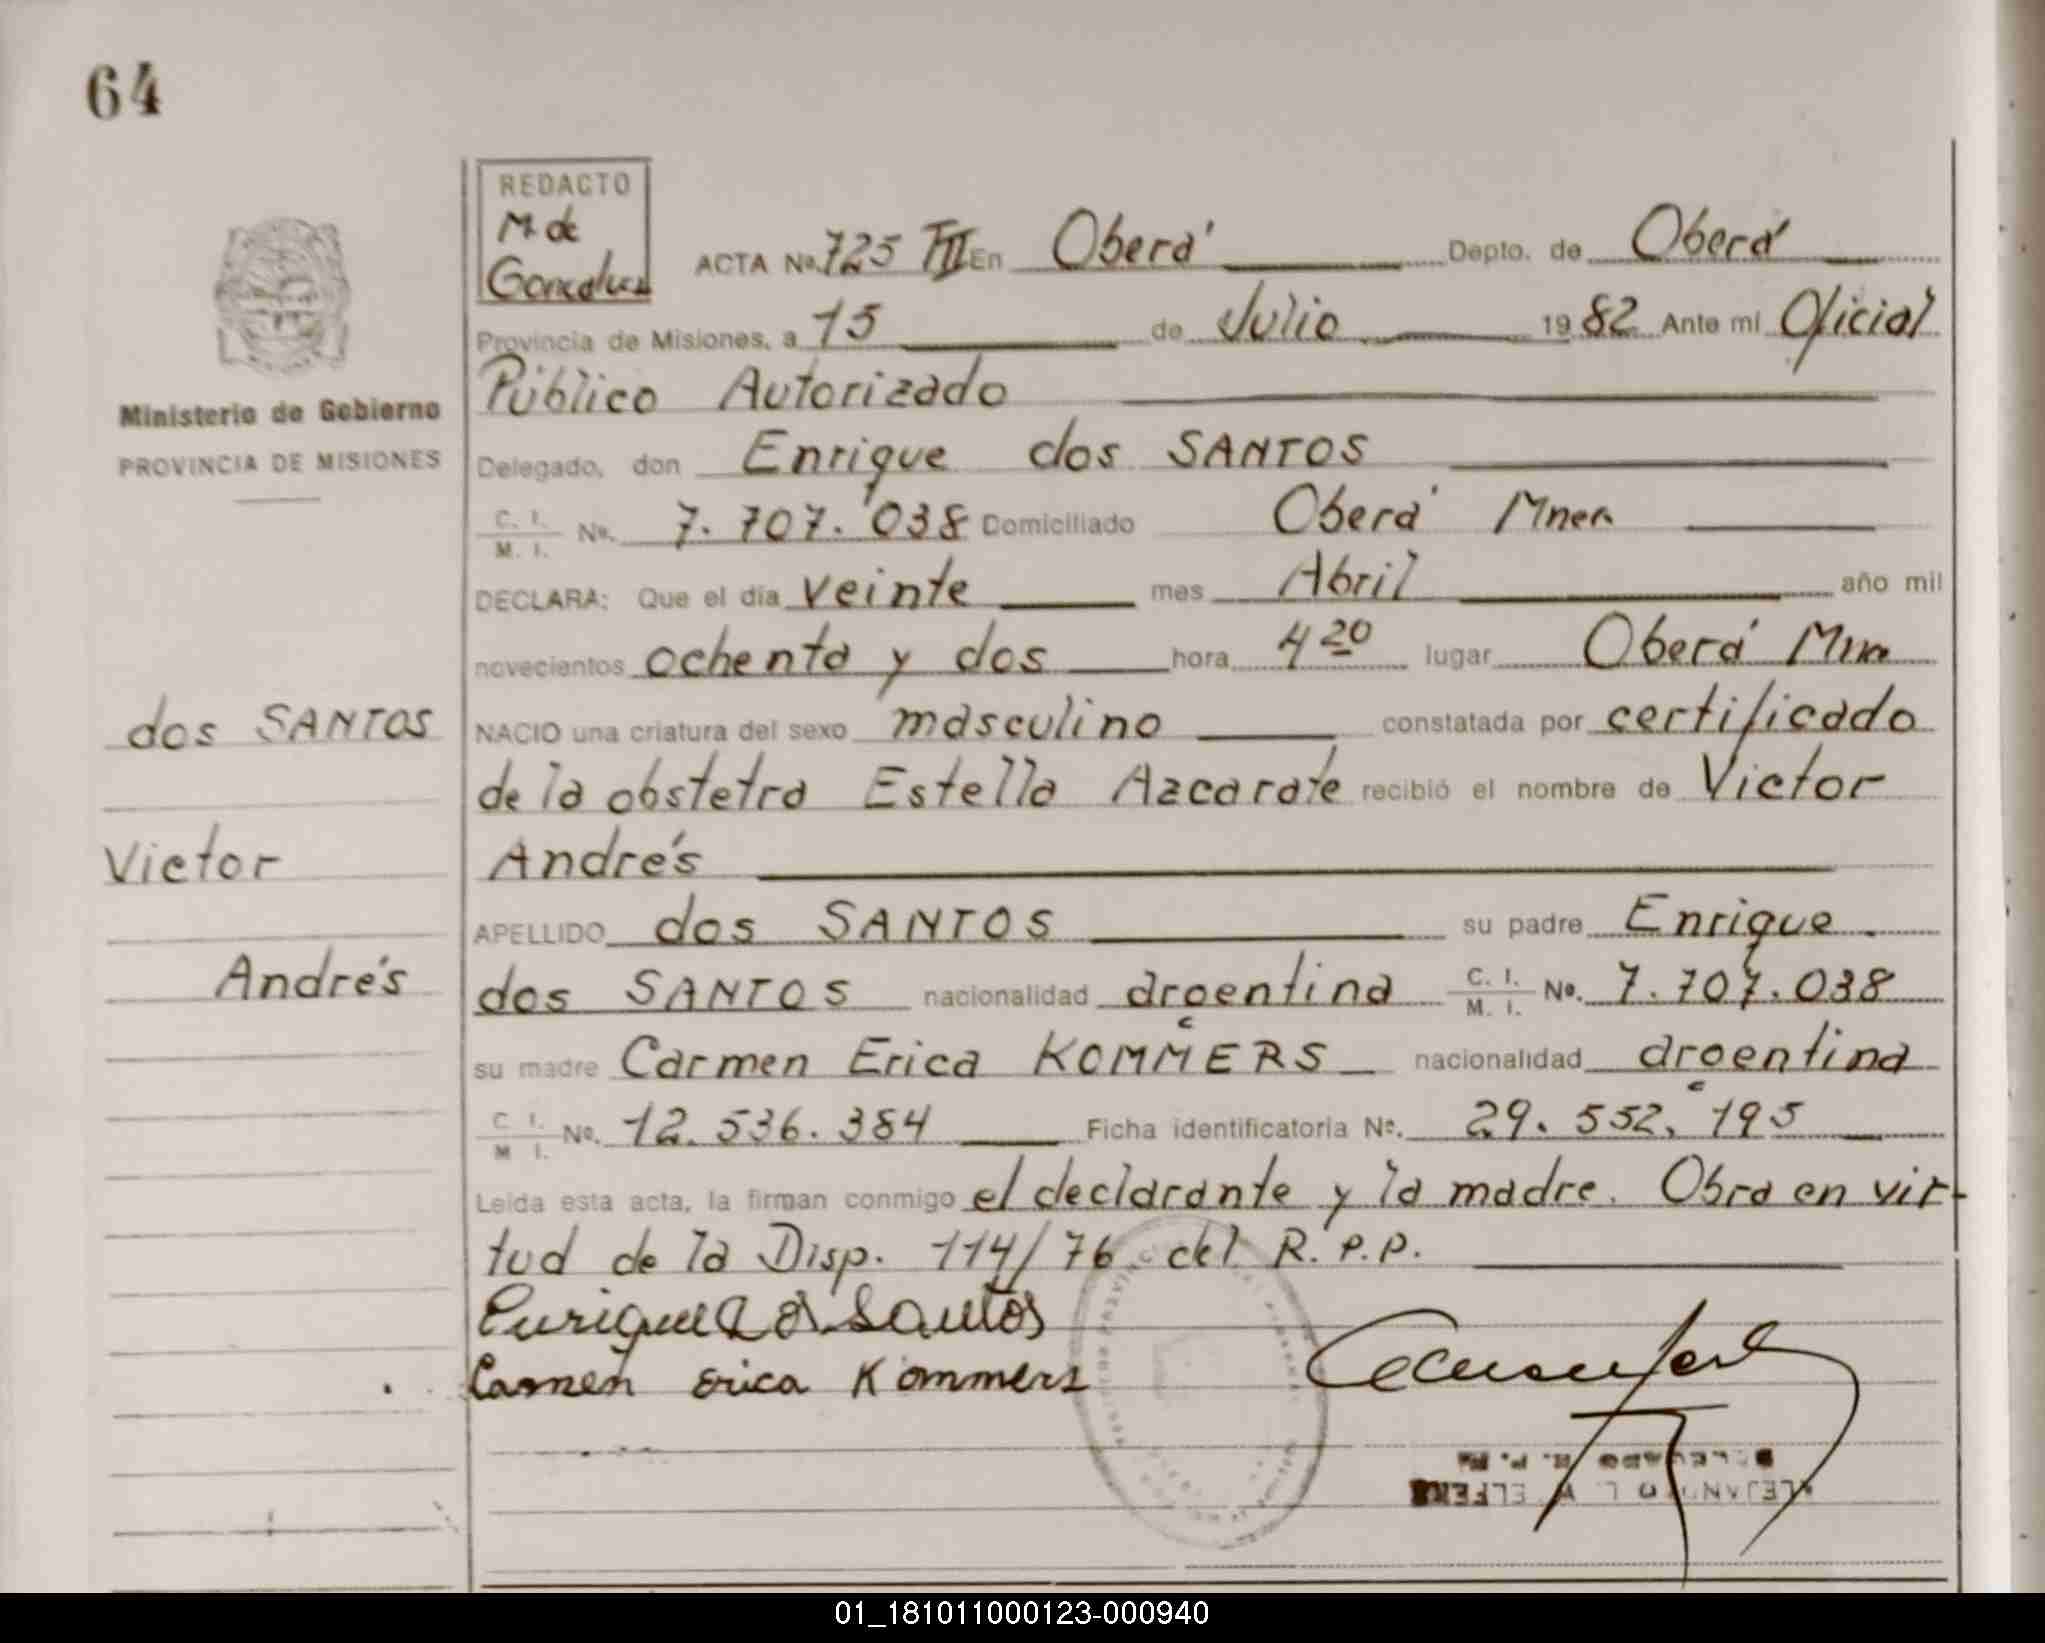 64
REDACTO
M. de
Gonzalez
ACTA No. 725 TII En Oberá Depto. de Oberá
Provincia de Misiones, a 15 de Julio 1982 Ante mi Oficial
Público Autorizado
Ministerio de Gobierno
PROVINCIA DE MISIONES
Delegado, don Enrique dos SANTOS
C. I. / M. I. No. 7.707.038 Domiciliado Oberá Mnes
DECLARA: Que el día veinte mes Abril año mil
novecientos ochenta y dos hora 4 20 lugar Oberá Mnes
dos SANTOS
NACIO una criatura del sexo masculino constatada por certificado
de la obstetra Estella Azcarate recibió el nombre de Victor
Victor
Andrés
APELLIDO dos SANTOS su padre Enrique
Andrés
dos SANTOS nacionalidad argentina C. I. / M. I. No. 7.707.038
su madre Carmen Erica KOMMERS nacionalidad argentina
C. I. / M. I. No. 12.536.384 Ficha identificatoria No. 29.552.195
Leída esta acta, la firman conmigo el declarante y la madre. Obra en vir-
tud de la Disp. 114/76 del R.P.P.
Enrique dos Santos
Carmen Erica Kommers
DELEGADO R. P. P.
01_181011000123-000940